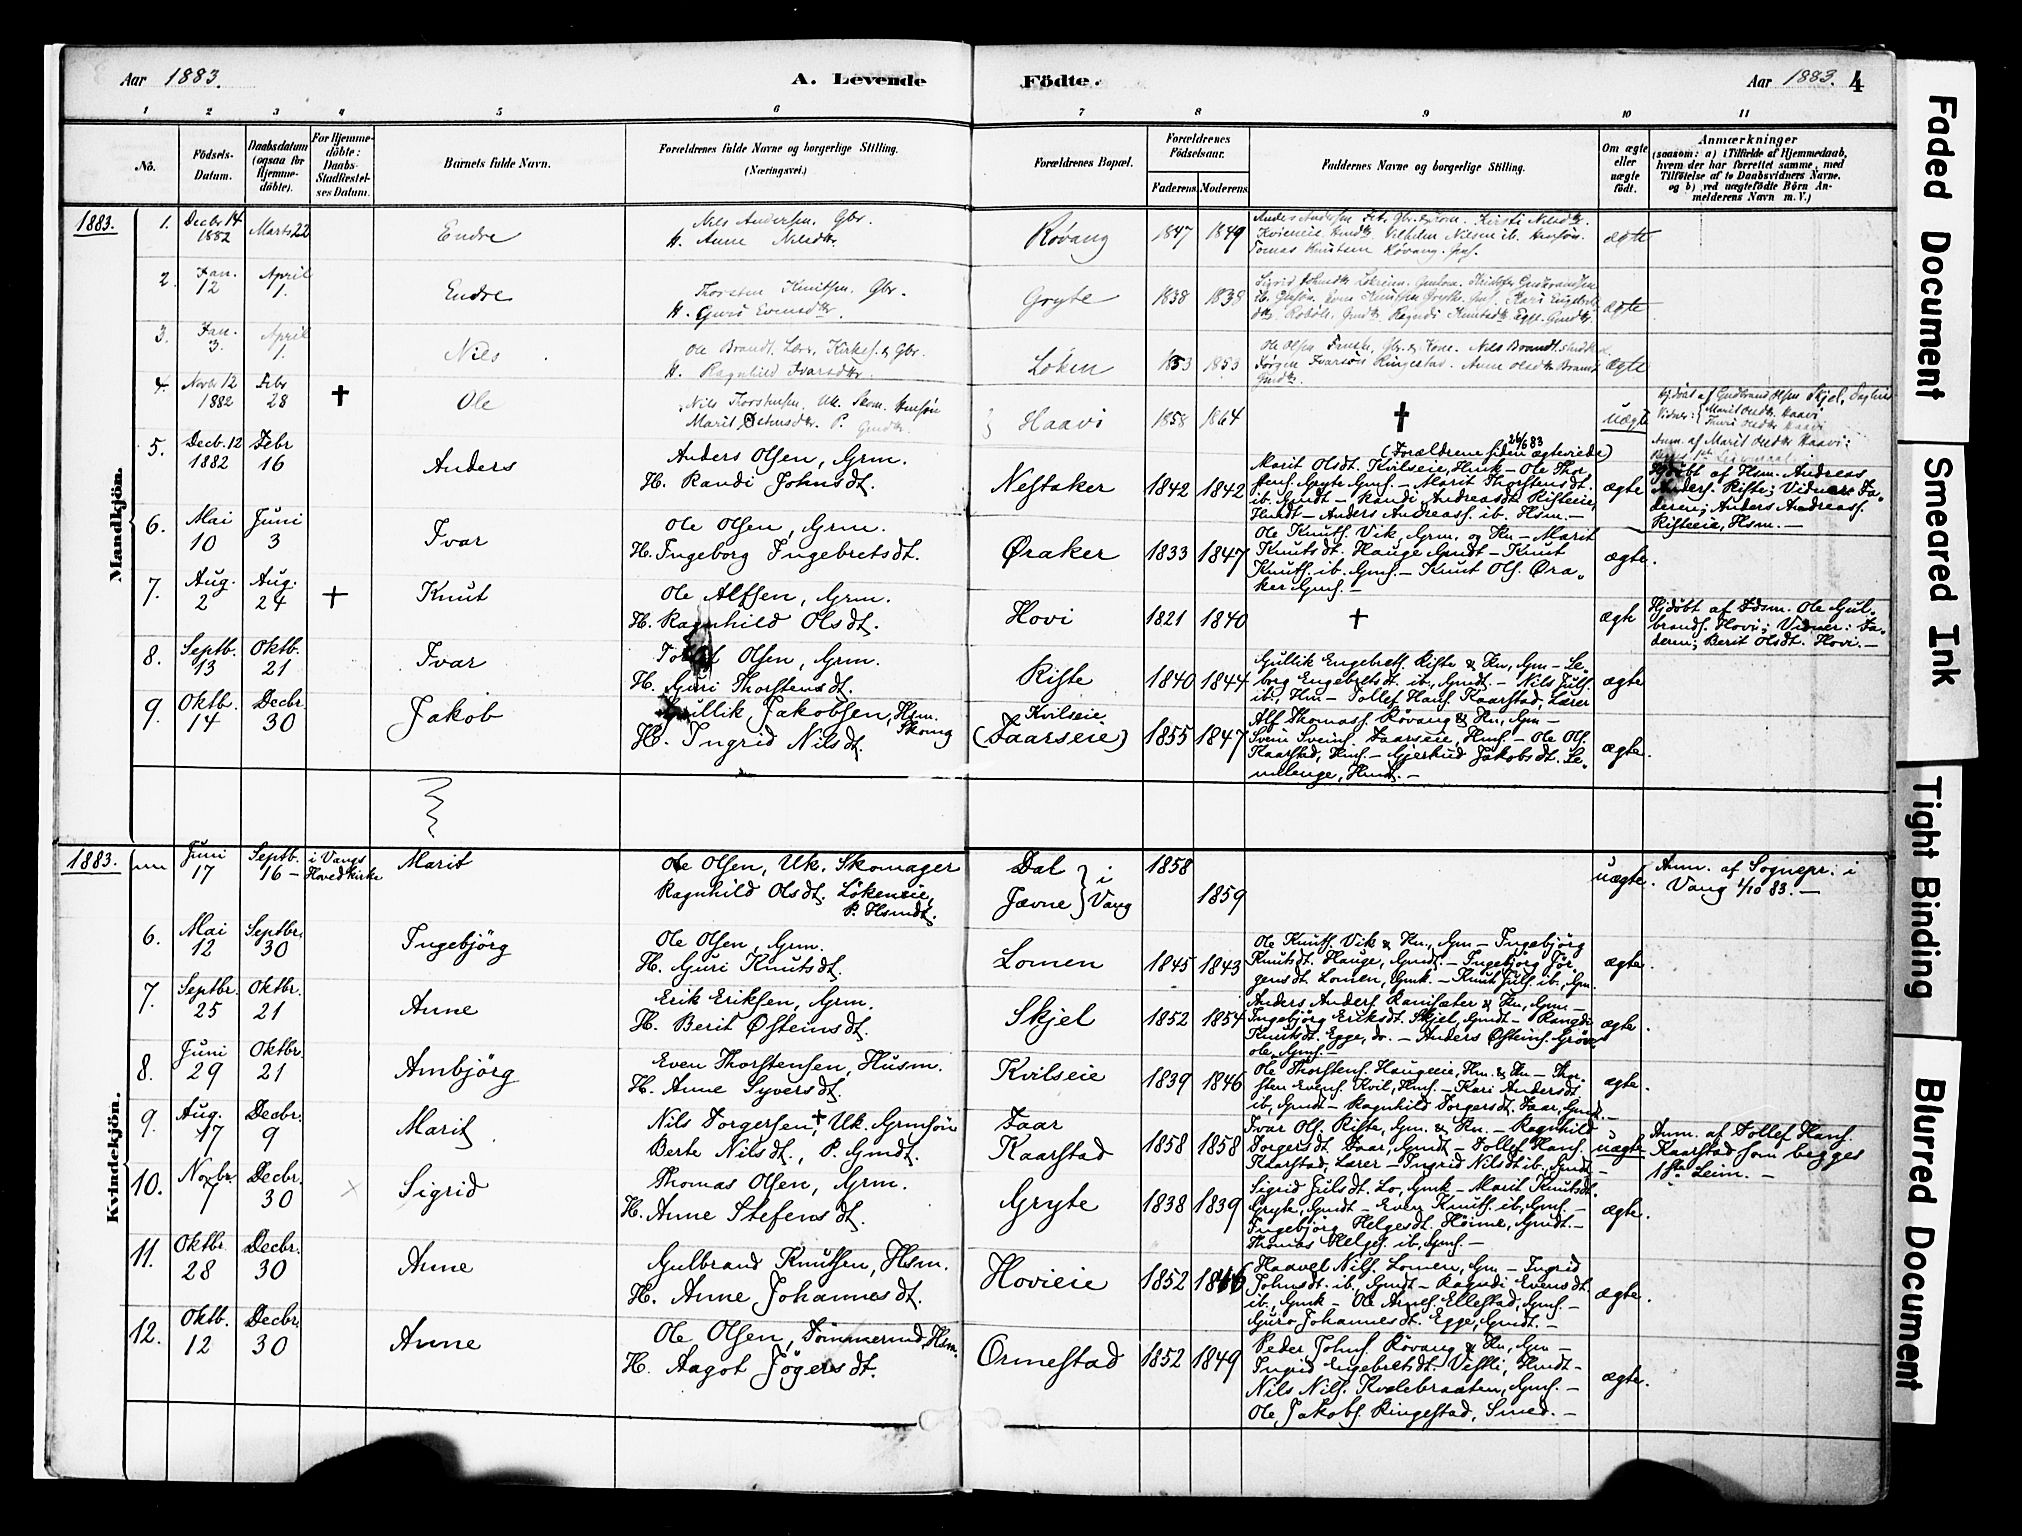 Aar 1883. A. Levende Födte. Aar 1883. 4
1 2 3 4 5 6 7 8 9 10 11
No. Födsels-Datum. Daabsdatum (ogsaa for Hjemme-döbte). For Hjemme-döbte: Daabs-Stadfæstel-ses Datum. Barnets fulde Navn. Forældrenes fulde Navne og borgerlige Stilling. (Næringsvei.) Forældrenes Bopæl. Forældrenes Födselsaar. Faderens. Moderens. Faddernes Navne og borgerlige Stilling. Om ægte eller uægte födt. Anmærkninger (saasom: a) i Tilfælde af Hjemmedaab, hvem der har forrettet samme, med Tilföielse af to Daabsvidners Navne, og b) ved uægtefödte Börn An-melderens Navn m. V.)
Mandkjön.
1883. 1. Decbr 14 1882 Marts 22 Endre
Nils Andersen. Gbr.
H. Anne Nilsdtr.
Røvang 1847 1849
Tomas Knutsen Røvang. Gmf.
ægte
2. Jan. 12 April 1. Endre
Thorsten Knutsen. Gbr.
H. Guro Evensdtr.
Gryte 1838 1838
ægte
3. Jan. 3. April 1. Nils
Ole Brandt. Lærer, Kirkes. & Gbr.
H. Ragnhild Ivarsdtr.
Løken 1853 1853
ægte
4. Novbr 12 1882 Febr 28 † Ole
Nils Thorstensen. Uk. Skom. Hussøn
Haavi 1858 1864
†
uægte
5. Decb. 12 1882 Febr 16 Anders
Anders Olsen, Grm.
H. Randi Johnsdt.
Nestaker 1842 1842
(Forældrene siden ægteviede) 26/6 83
Marit Olsdt. Kvilseie, Hmk - Ole Thor
stens. Gryte Gmf. - Marit Thorstensdt.
ib. Gmdt - Randi Andreasdt. Risteeie,
Hmdt - Anders Andreass. ib. Hsm. -
ægte
Hjdöbt af Hsm. Andreas
Anders. Riste; Vidner: Fa-
deren; Anders Andreass.
Risteeie, Hsm. -
6. Mai 10 Juni 3 Ivar
Ole Olsen, Grm.
H. Ingeborg Ingebretsdt.
Øraker 1833 1847
Ole Knuts. Vik, Grm. og Kn - Marit
Knutsdt. Hauge Gmdt - Knut
Knuts. ib. Gmf. - Knut Ols. Øra-
ker Gmf. -
ægte.
7. Aug. 2 Aug. 24 † Knut
Ole Alfsen, Grm.
H. Ragnhild Olsdt.
Hovi 1821 1840
†
ægte
Hjdöbt af Fdsm. Ole Gul-
brands. Hovi; Vidner: Fa-
deren; Berit Olsdt. Hovi. -
8. Septb. 13 Oktb. 21 Ivar
Tollef Olsen, Grm.
H. Guri Thorstensdt.
Riste 1840 1844
Gullik Engebrets. Riste & Kn, Gm - Se-
borg Engebretsdt. ib., Gmdt. - Nils Juls.
ib., Hm - Tollef Hans. Kaarstad, Lærer
ægte
9. Oktb. 14 Decbr. 30 Jakob
Gullik Jakobsen, Hsm. Skomg
H. Ingrid Nilsdt.
Kvilseie
(Faarseie) 1855 1847
Alf Thomass. Røvang & Kn, Gm -
Svein Sveins. Faarseie, Hmf. - Ole Ols.
Kaarstad, Hmf. - Gjertrud Jakobsdt. Se-
mellenge, Hmdt. -
ægte.
Kvindekjön.
1883. Juni 17 Septb. 16 - i Vangs Hovedkirke Marit
Ole Olsen, Uk. Skomager
Ragnhild Olsdt. Lökeneie,
P. Hsmdt.
Dal
Jævne } i Vang
1858
1859
uægte.
Anm. af Sognepr. i
Vang 1/10 83. -
6. Mai 12 Septbr. 30 Ingebjörg
Ole Olsen, Grm.
H. Guri Knutsdt.
Lomen 1845 1843
Ole Knuts. Vik & Kn., Gm - Ingebjörg
Knutsdt. Hauge, Gmdt. - Ingebjörg Jör-
gensdt. Lomen, Gmk. - Knut Juls. ib., Gm.
ægte.
7. Septbr. 25 Oktbr. 21 Anne
Erik Eriksen, Grm.
H. Berit Østensdt.
Skjel 1852 1854
Anders Anders. Ranisæter & Kn, Gmn -
Ingebjörg Eriksdt. Skjel, Gmdt - Rangdi
Knutsdt. Egge, do. - Anders Østeins. Gröv-
ole, Gmf. -
ægte.
8. Juni 29 Oktbr. 21 Ambjörg
Even Thorstensen, Husm.
H. Anne Syversdt.
Kvilseie 1839 1846
Ole Thorstens. Haugeeie, Hm. & Kn - Thor-
sten Evens. Kvil, Hmf. - Kari Andersdt.
ib., Gmdt - Ragnhild Torgersdt. Faar, Gmdt. -
ægte.
9. Aug. 17 Decbr. 9 Marit
Nils Torgersen, † Uk. Grmsön
Berte Nilsdt., P. Gmdt.
Faar
Kaarstad 1858 1858
Ivar Ols. Riste, Gm. & Kn. - Ragnhild
Torgersdt. Faar, Gmdt - Tollef Hans.
Kaarstad, Lærer - Ingrid Nilsdt ib., Gmdt -
uægte
Anm. af Tollef Hans.
Kaarstad som begges
1ste Leierm. -
10. Novbr. 7 Decbr. 30 × Sigrid
Thomas Olsen, Grm.
H. Anne Stefensdt.
Gryte 1838 1839
Sigrid Julsdt. Lo, Gmk - Marit Knutsdt.
Gryte, Gmdt - Even Knuts. ib, Gmf. -
Ingebjörg Helgesdt. Höime, Gmdt. -
Thomas Helges. ib, Gmf. -
ægte.
11. Oktbr. 28 Decbr. 30 Anne
Gulbrand Knutsen, Hsm.
H. Anne Johannesdt.
Hovieie 1852 1846
Haavel Nils. Lomen, Gm - Ingrid
Johnsdt. ib., Gmdt - Ragndi Evensdt.
ib., Gmk - Ole Arnes. Ellestad, Gmf. -
Guro Johannesdt. Egge, Gmdt. -
ægte.
12. Oktb. 12 Decbr. 30 Anne
Ole Olsen, Tömmermd, Hsm.
H. Aagot Jögersdt.
Ormestad 1852 1849
Peder Johns. Røvang & Kn, Gm -
Ingrid Engebretsdt. Vestli, Hmdt -
Nils Nils. Kvalebraaten, Gmf. -
Ole Jakobs. Ringestad, Smed. -
ægte.
Faded Document
Smeared Ink
Tight Binding
Blurred Document